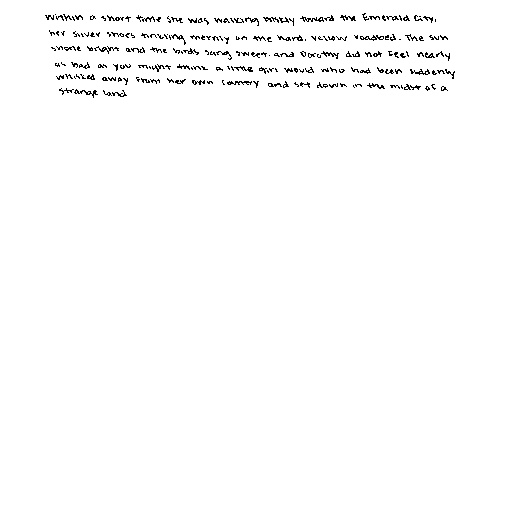 Within a short time she was walking briskly toward the Emerald City,
her silver shoes tinkling merrily on the hard, yellow roadbed. The sun
shone bright and the birds sang sweet, and Dorothy did not feel nearly
as bad as you might think a little girl would who had been suddenly
whisked away from her own country and set down in the midst of a
strange land